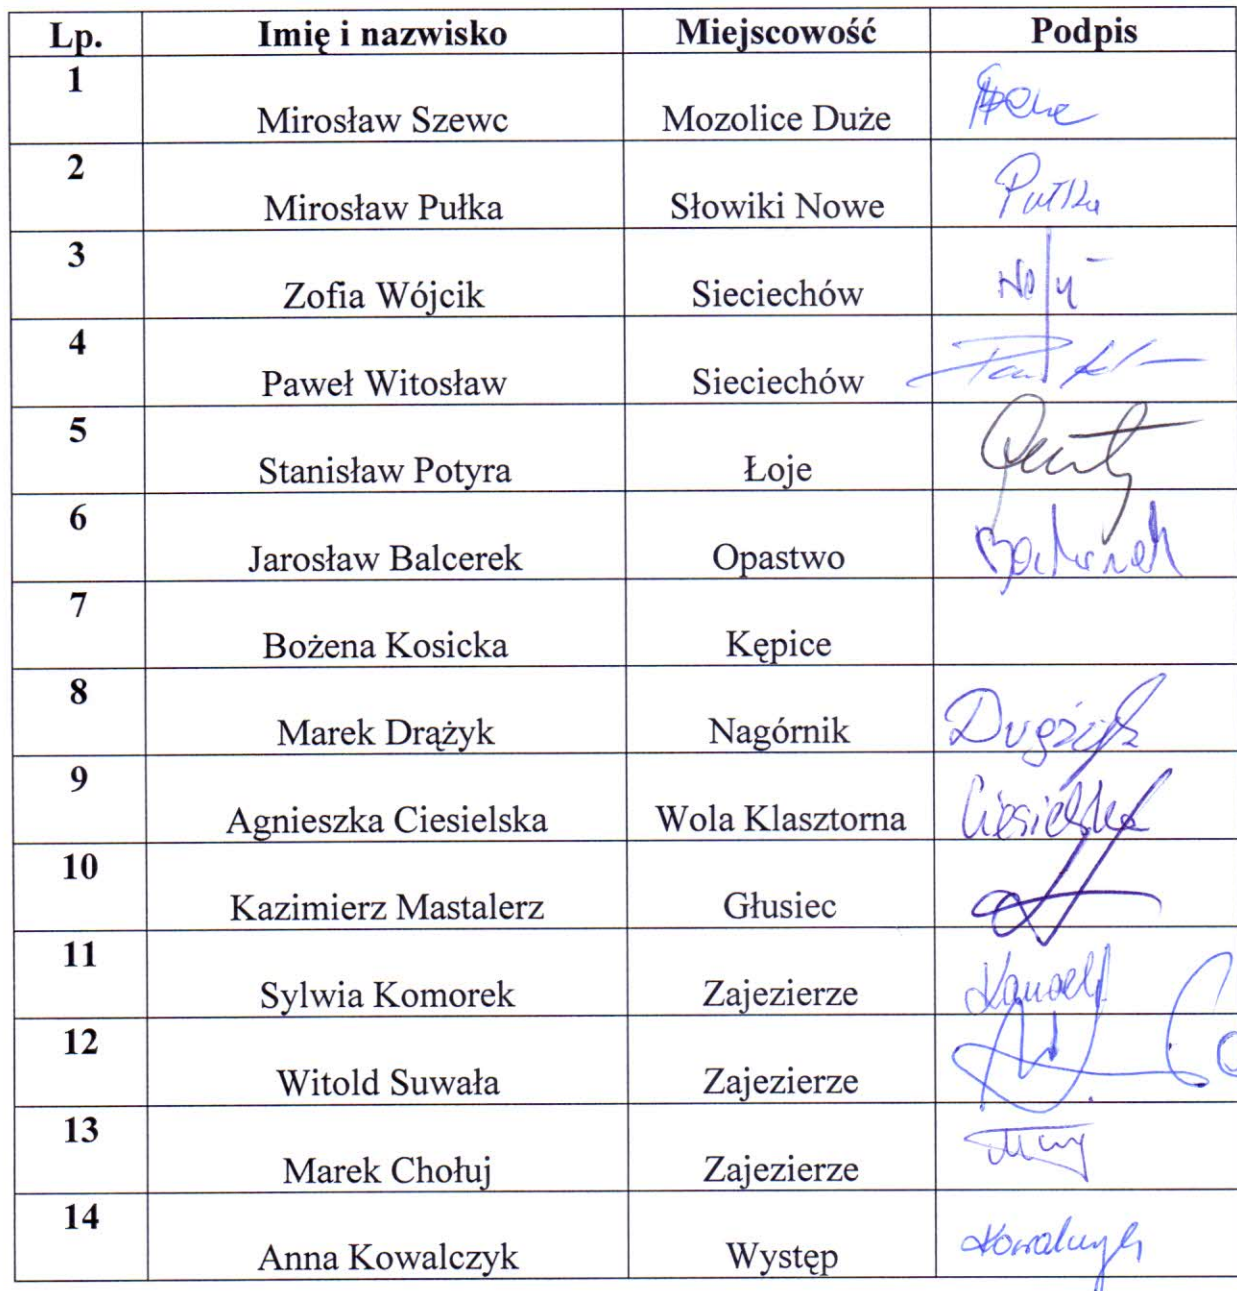 Lp. Imię i nazwisko Miejscowość Podpis
1 Mirosław Szewc Mozolice Duże
2 Mirosław Pułka Słowiki Nowe Pułka
3 Zofia Wójcik Sieciechów
4 Paweł Witosław Sieciechów
5 Stanisław Potyra Łoje
6 Jarosław Balcerek Opastwo
7 Bożena Kosicka Kępice
8 Marek Drążyk Nagórnik
9 Agnieszka Ciesielska Wola Klasztorna Ciesielska
10 Kazimierz Mastalerz Głusiec
11 Sylwia Komorek Zajezierze
12 Witold Suwała Zajezierze
13 Marek Chołuj Zajezierze
14 Anna Kowalczyk Występ Kowalczyk